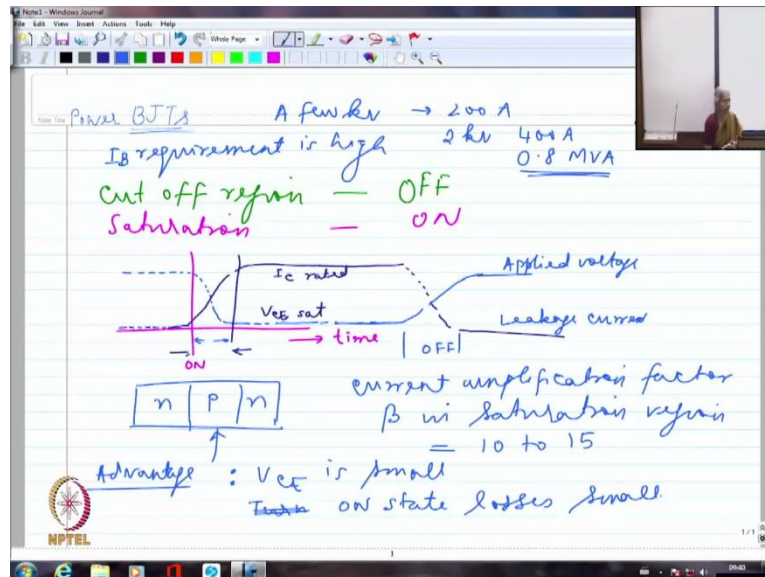 Note1 - Windows Journal
File Edit View Insert Actions Tools Help
Whole Page
Power BJTs A few kv → 200 A
IB requirement is high 2 kv 400 A
0.8 MVA
Cut off region — OFF
Saturation — ON
Ic rated
Applied voltage
VCE sat
Leakage current
→ time
OFF
ON
n P n
current amplification factor
β in saturation region
= 10 to 15
Advantage : VCE is small
ON state losses small
NPTEL
1/1
09:40